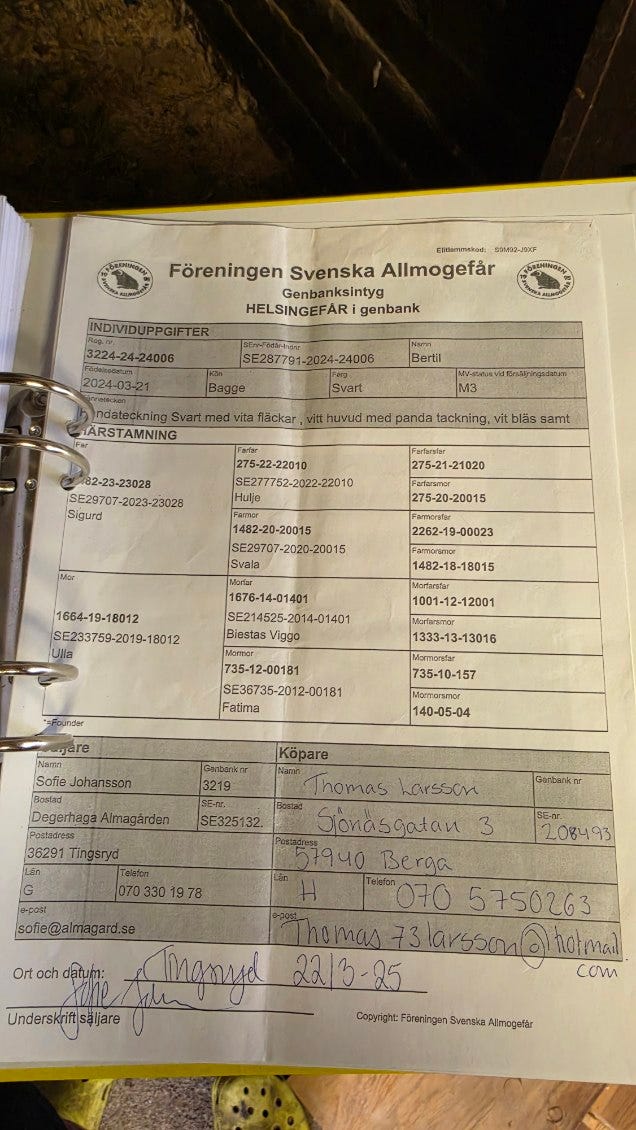 Elitlammskod: S9M92-J9XF
Föreningen Svenska Allmogefår
Genbanksintyg
HELSINGEFÅR i genbank
FÖRENINGEN SVENSKA ALLMOGEFÅR
FÖRENINGEN SVENSKA ALLMOGEFÅR
INDIVIDUPPGIFTER
Reg. nr. SEnr-Födår-Indnr Namn
3224-24-24006 SE287791-2024-24006 Bertil
Födelsedatum Kön Färg MV-status vid försäljningsdatum
2024-03-21 Bagge Svart M3
ndateckning Svart med vita fläckar , vitt huvud med panda tackning, vit bläs samt
HÄRSTAMNING
Far
82-23-23028
SE29707-2023-23028
Sigurd
Farfar
275-22-22010
SE277752-2022-22010
Hulje
Farfarsfar
275-21-21020
Farfarsmor
275-20-20015
Farmor
1482-20-20015
SE29707-2020-20015
Svala
Farmorsfar
2262-19-00023
Farmorsmor
1482-18-18015
Mor
1664-19-18012
SE233759-2019-18012
Ulla
Morfar
1676-14-01401
SE214525-2014-01401
Biestas Viggo
Morfarsfar
1001-12-12001
Morfarsmor
1333-13-13016
Mormor
735-12-00181
SE36735-2012-00181
Fatima
Mormorsfar
735-10-157
Mormorsmor
140-05-04
*=Founder
Säljare
Namn Genbank nr
Sofie Johansson 3219
Bostad SE-nr.
Degerhaga Almagården SE325132.
Postadress
36291 Tingsryd
Län Telefon
G 070 330 19 78
e-post
sofie@almagard.se
Köpare
Namn Genbank nr
Thomas Larsson
Bostad SE-nr.
Sjönäsgatan 3 208493
Postadress
57940 Berga
Län Telefon
H 070 5750263
e-post
Thomas73larsson@hotmail.
com
Ort och datum: Tingsryd 22/3-25
Underskrift säljare
Copyright: Föreningen Svenska Allmogefår